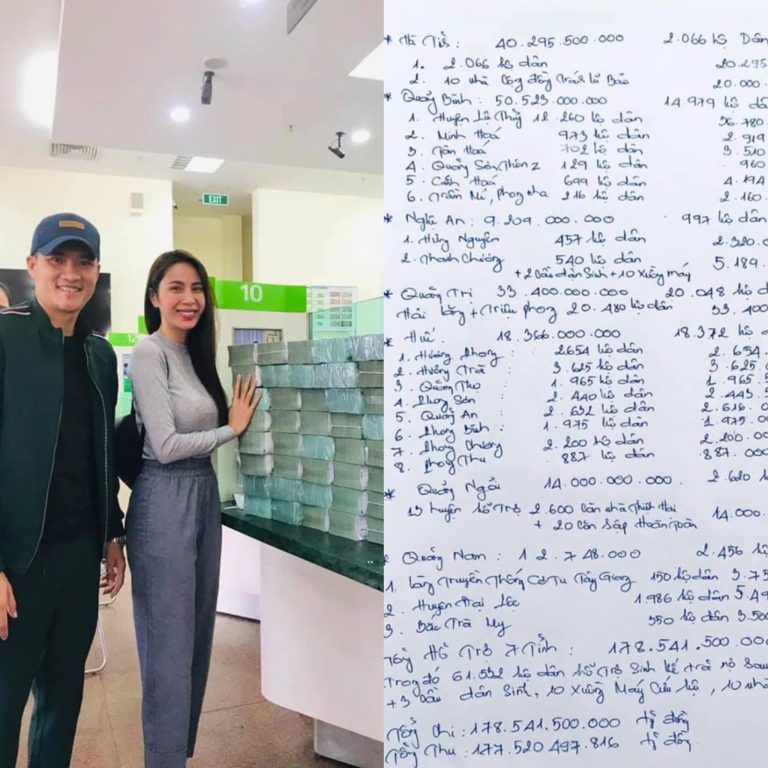 EXIT
10
12
* Hà Tĩnh : 40.295.500.000 2.066 hộ Dân
1. 2.066 hộ dân 20.295
2. 10 nhà Cộng đồng Tránh lũ Bão 20.000.
* Quảng Bình : 50.523.000.000 14.979 hộ dâ
1. Huyện Lệ Thủy 12.260 hộ dân 36.780.
2. Minh Hoá 973 hộ dân 2.919
3. Tân Hoá 702 hộ dân 3.510
4. Quảng Sơn Thôn 2 129 hộ dân 960
5. Cảnh Hoá 699 hộ dân 4.194
6. Trần Mé, Phong nha 216 hộ dân 2.160.
* Nghệ An : 9.209.000.000 997 hộ dân
1. Hưng Nguyên 457 hộ dân 2.320.0
2. Thanh Chương 540 hộ dân 5.189.
+ 2 Cầu dân Sinh + 10 xuồng máy
* Quảng Trị 33.400.000.000 20.048 hộ d
Hải Lăng + Triệu phong 20.480 hộ dân 33.400
* Huế. 18.366.000.000 18.372 hộ d
1. Hương Phong : 2654 hộ dân 2.654.
2. Hương Trà : 3.625 hộ dân 3.625.0
3. Quảng Thọ 1.965 hộ dân 1.965.5
4. Phong Sơn 2.440 hộ dân 2.443.5
5. Quảng An 2.632 hộ dân 2.616.0
6. Phong Bình : 1.975 hộ dân 1.975.0
7. Phong Chương 2.200 hộ dân 2.200.00
8. Phong Thu 887 hộ dân 887.000
* Quảng Ngãi 14.000.000.000. 2.620 h
13 huyện hỗ Trợ 2.600 Căn nhà Thiệt Hại 14.000.
+ 20 Căn Sập Hoàn Toàn
Quảng Nam : 12.748.000 2.456 hộ
1. Làng Truyền Thống Cơ Tu Tây Giang 150 hộ dân 3.75
2. Huyện Đại Lộc 1.986 hộ dân 5.49
3. Bắc Trà My 350 hộ dân 3.500
Tổng Hỗ Trợ 7 Tỉnh : 178.541.500.000
Trong đó 61.532 hộ dân hỗ Trợ Sinh kế trả nợ sau
+ 3 Cầu dân Sinh, 10 Xuồng Máy Cứu hộ, 10 nhà
Tổng Chi : 178.541.500.000 tỷ đồng
Tổng Thu : 177.520.497.816 tỷ đồng.